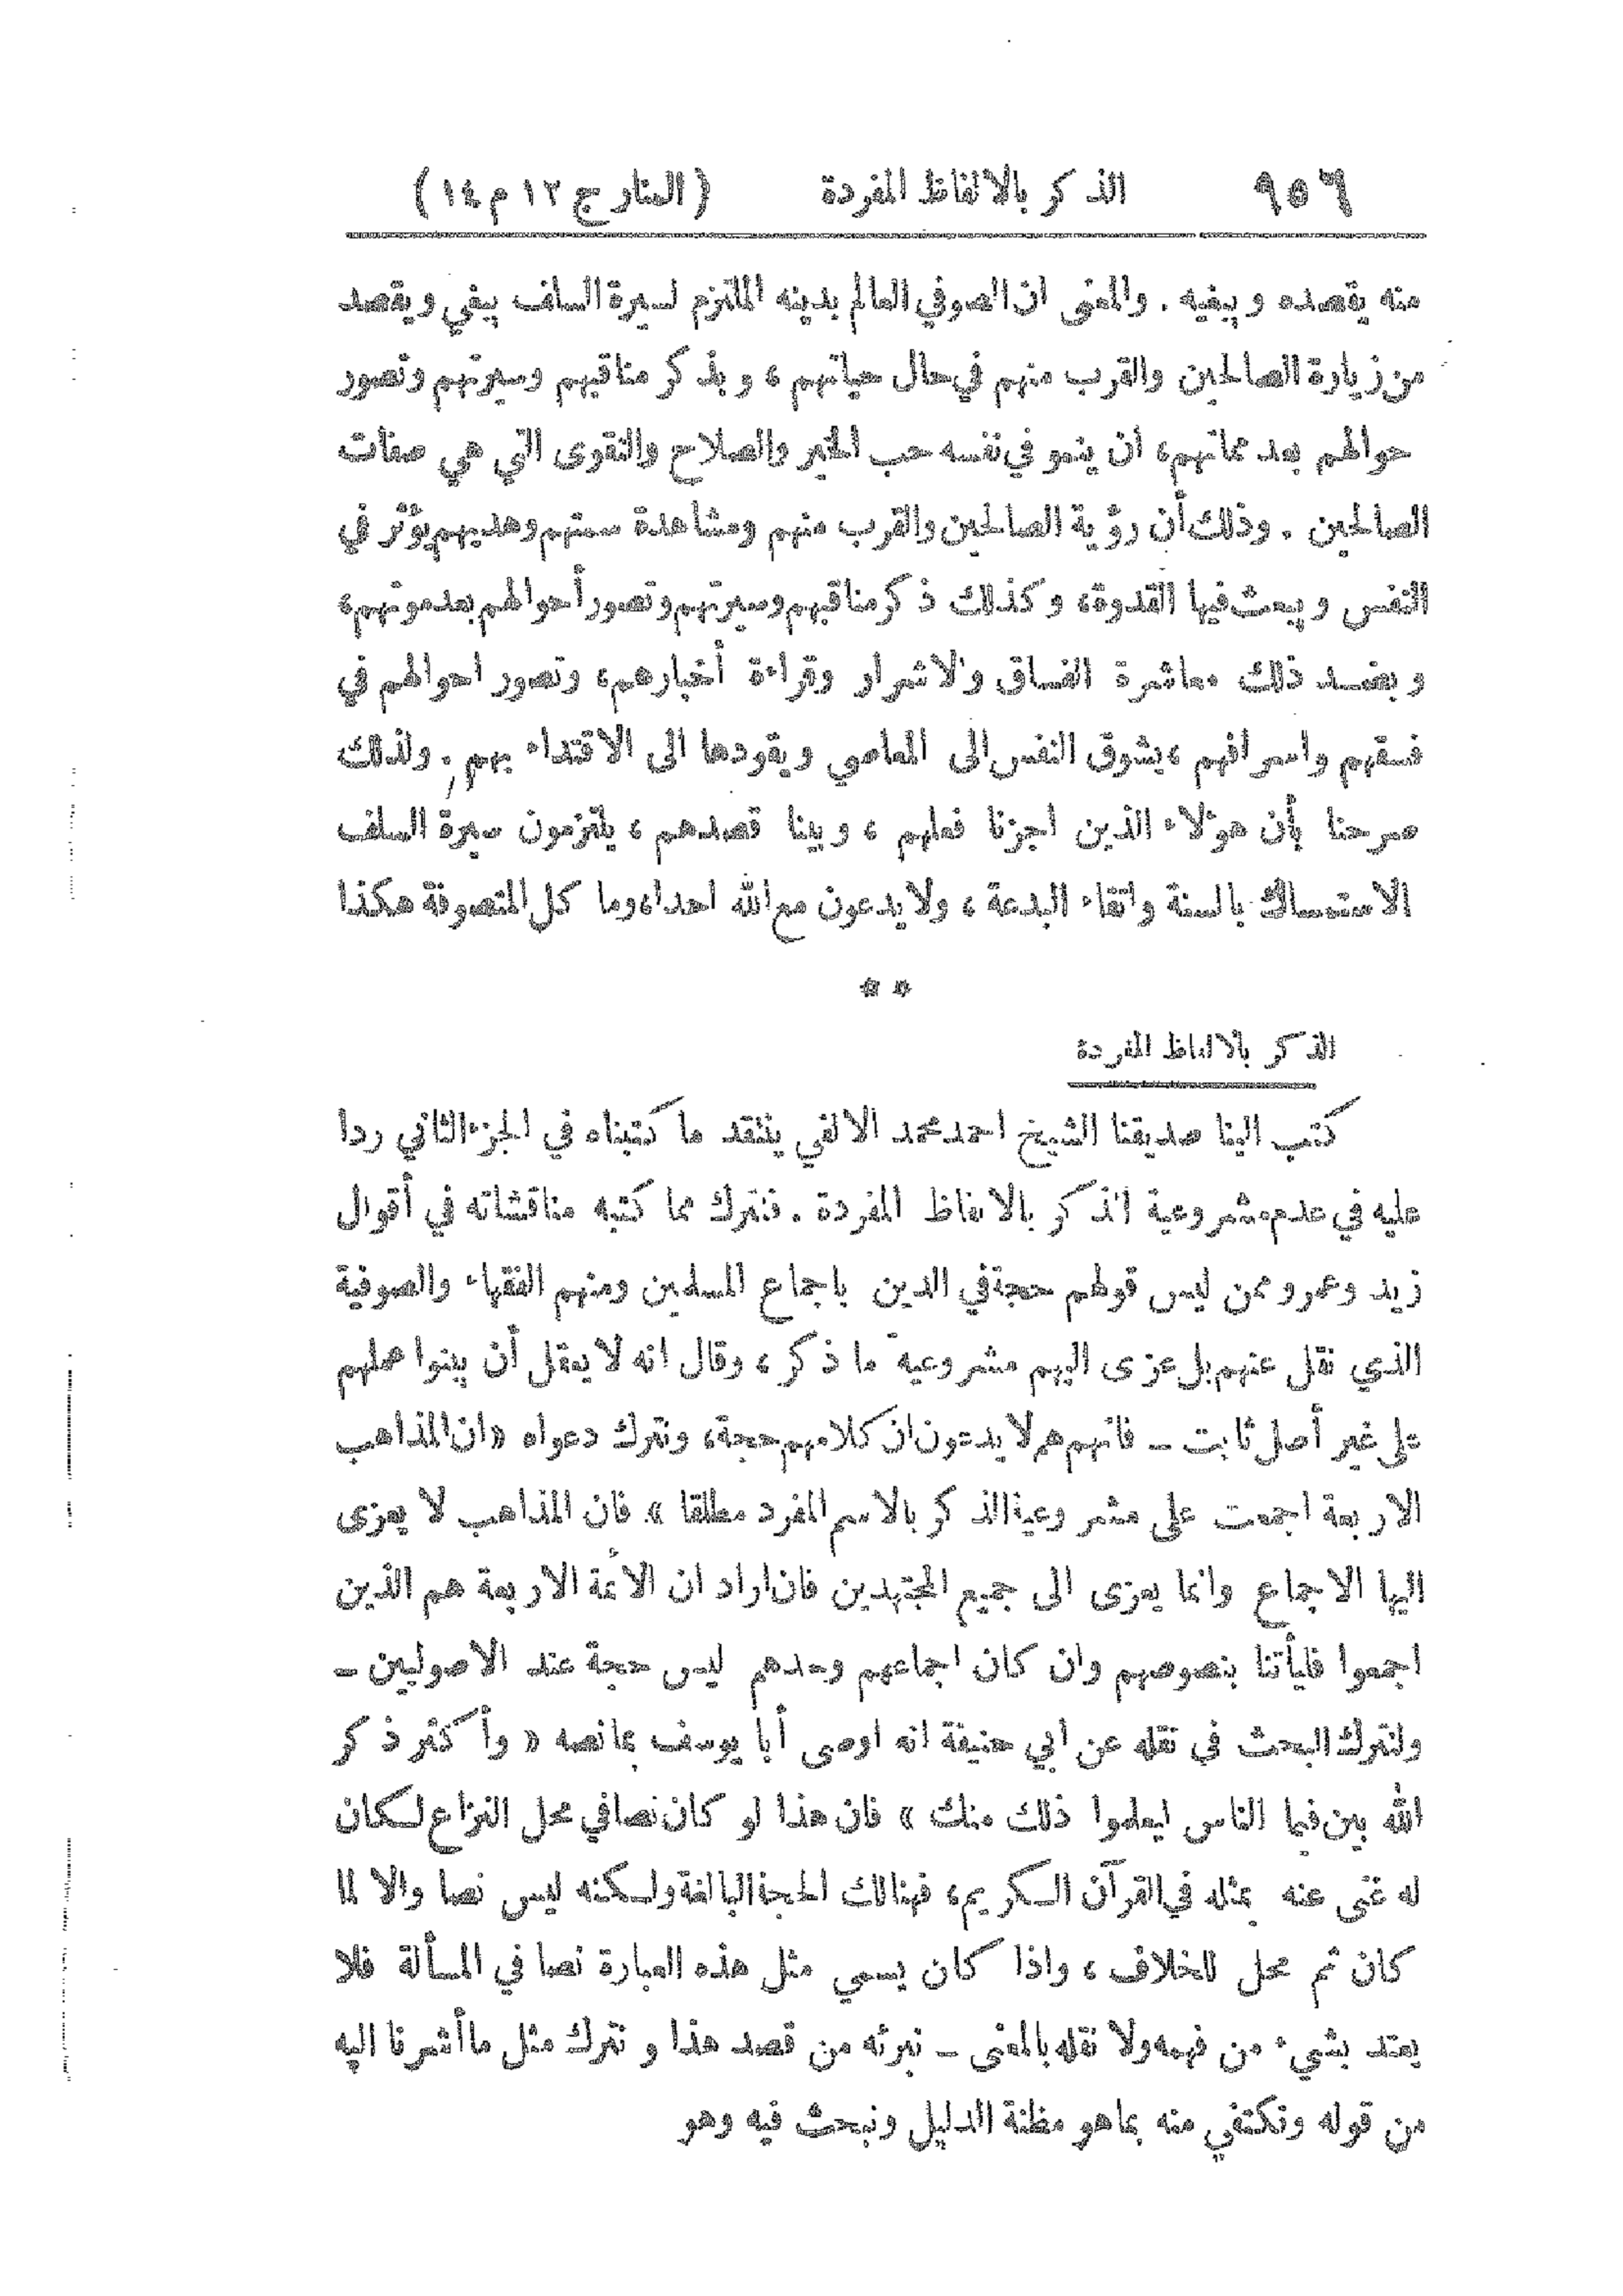 ٩٥٦ الذكر بالالفاظ المفردة (المنار ج ١٢ م ١٤)
منه يقصده ويبغيه . والمعنى ان الصوفي العالم بدينه الملتزم لسيرة السلف يبغي ويقصد
من زيارة الصالحين والقرب منهم في حال حياتهم ، وبذكر مناقبهم وسيرتهم وتصور
حوالهم بعد مماتهم، أن ينمو في نفسه حب الخير والصلاح والتقوى التي هي صفات
الصالحين . وذلك أن رؤية الصالحين والقرب منهم ومشاهدة سمتهم وهديهم يؤثر في
النفس ويبعث فيها القدوة، وكذلك ذكر مناقبهم وسيرتهم وتصور أحوالهم بعد موتهم،
وبضد ذلك معاشرة الفساق والاشرار وقراءة أخبارهم، وتصور احوالهم في
فسقهم واسرافهم ، يشوق النفس الى المعاصي ويقودها الى الاقتداء بهم . ولذلك
صرحنا بأن هؤلاء الذين اجزنا فعلهم ، وبينا قصدهم ، يلتزمون سيرة السلف
الاستمساك بالسنة واتقاء البدعة ، ولا يدعون مع الله احدا، وما كل المتصوفة هكذا
* *
الذكر بالالفاظ المفردة
كتب الينا صديقنا الشيخ احمد محمد الالفي ينتقد ما كتبناه في الجزء الثاني ردا
عليه في عدم مشروعية الذكر بالالفاظ المفردة . فنترك مما كتبه مناقشاته في أقوال
زيد وعمرو ممن ليس قولهم حجة في الدين باجماع المسلمين ومنهم الفقهاء والصوفية
الذي نقل عنهم بل عزى اليهم مشروعية ما ذكر ، وقال انه لا يعقل أن يبنوا عملهم
على غير أصل ثابت – فانهم هم لا يدعون ان كلامهم حجة، ونترك دعواه «ان المذاهب
الاربعة اجمعت على مشروعية الذكر بالاسم المفرد مطلقا» فان المذاهب لا يعزى
اليها الاجماع وانما يعزى الى جميع المجتهدين فان اراد ان الائمة الاربعة هم الذين
اجمعوا فليأتنا بنصوصهم وان كان اجماعهم وحدهم ليس حجة عند الاصوليين –
ولنترك البحث في نقله عن ابي حنيفة انه اوصى أبا يوسف بما نصه « وأكثر ذكر
الله بين فيما الناس ليعلموا ذلك منك » فان هذا لو كان نصا في محل النزاع لكان
له غنى عنه بمثله في القرآن الكريم، فهنالك الحجة البالغة ولكنه ليس نصا والا لما
كان ثم محل للخلاف ، واذا كان يسمي مثل هذه العبارة نصا في المسألة فلا
يعتد بشيء من فهمه ولا نقله بالمعنى – نبرئه من قصد هذا ونترك مثل ما أشرنا اليه
من قوله ونكتفي منه بما هو مظنة الدليل ونبحث فيه وهو